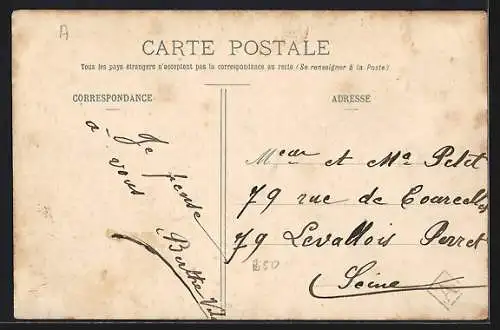 A
CARTE POSTALE
Tous les pays étrangers n'acceptent pas la correspondance au recto (Se renseigner à la Poste)
CORRESPONDANCE
ADRESSE
Je pense
à vous
Berthe
Mr et Me Petit
79 rue de Courcelles
79 Levallois Perret
Seine
B50